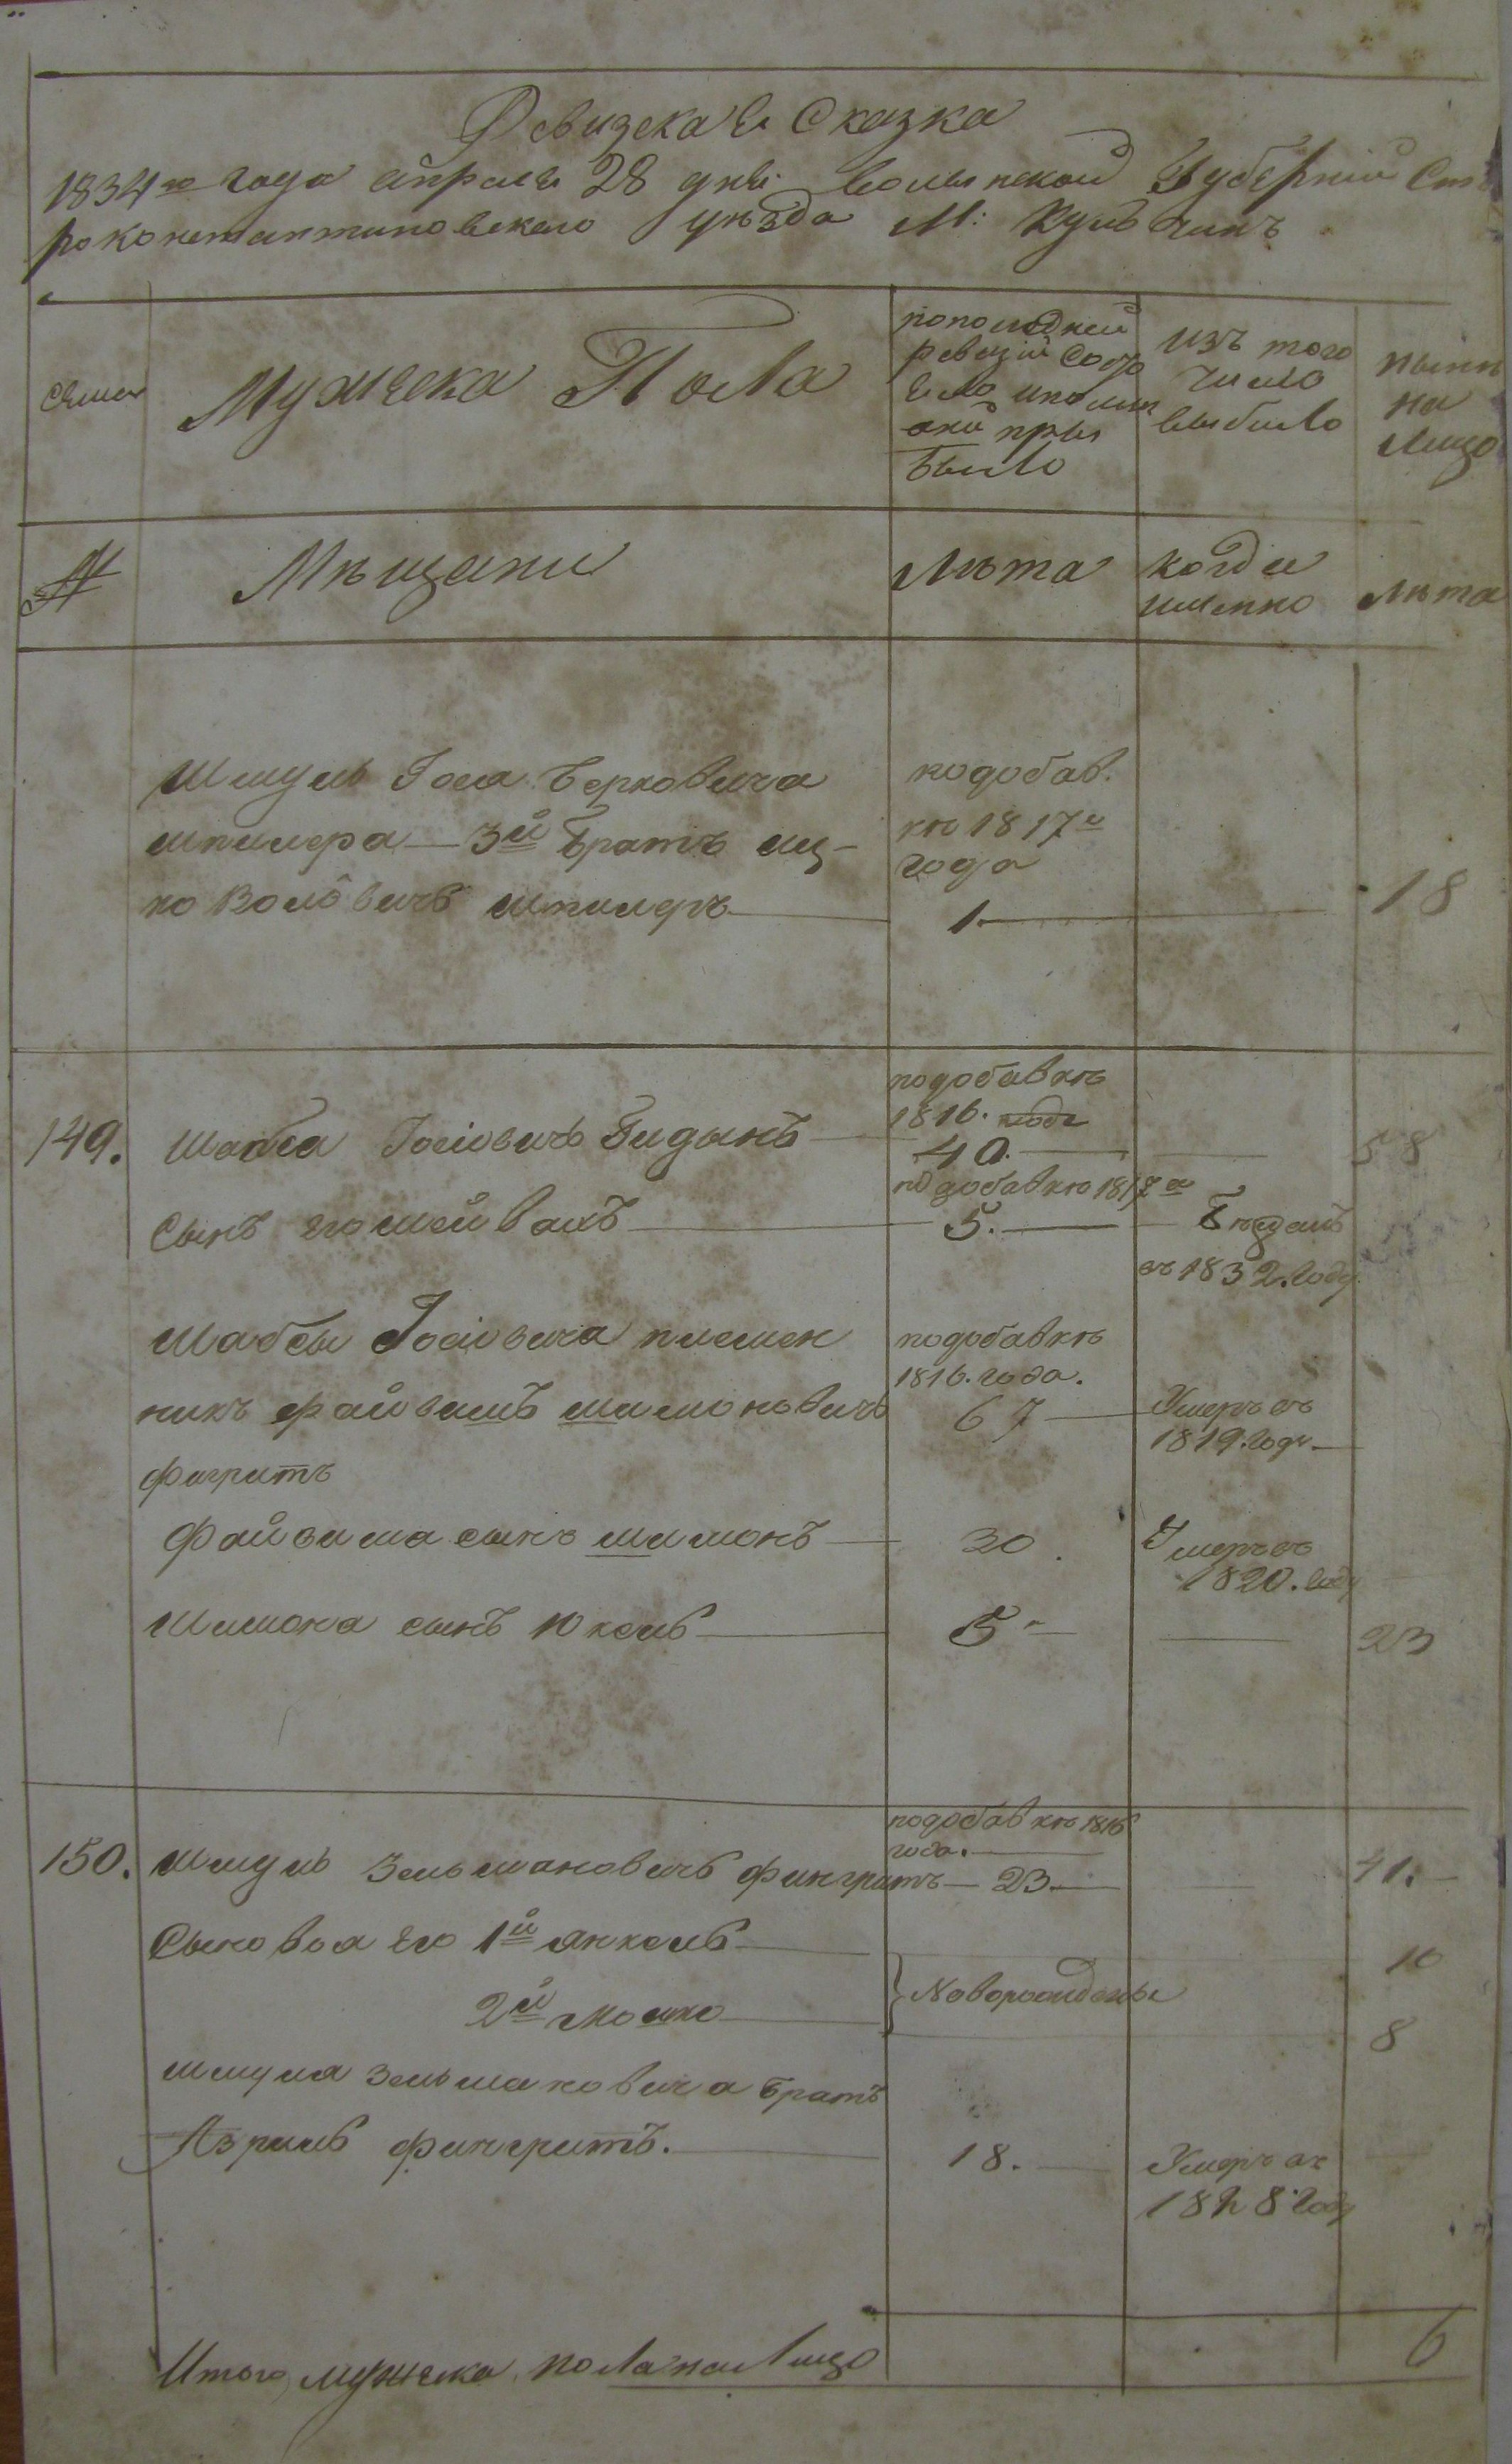 Ревизская Сказка
1834го года апреля 28 дня Волынской Губерніи Ста
роконстантиновскаго уѣзда М: Кульчинъ
Семьи
Мужеска Пола
по последней
ревизіи состо
яло и после
оной при
было
изъ того
числа
выбыло
нынѣ
на
лицо
№
Мѣщани
Лѣта
когда
именно
Лѣта
Шмуль Іося Берковича
шпилера — 3й братъ иц-
ко Волфовичъ шпилеръ
подобав.
кѣ 1817го
года
1.
18
149.
Шабса Іосіовичъ Зидынъ
подобавкѣ
1816. года
40.
58
Сынъ его Лейвахъ
по добавкѣ 1817го
5.
въ 1832. году
Шабсы Іосіовича племен
никъ файвишъ шимоновичъ
фигритъ
подобавкѣ
1816. года.
67
Умеръ въ
1819. году
Файвиша сынъ шимонъ
30.
Умеръ въ
1820. году
Шимона сынъ Юкель
5
23
150.
Шмуль Зельмановичъ фингритъ
подобавкѣ 1816
года.
23
41.
Сыновья его 1й янкель
10
2й мошко
Новорожденые
8
Шмуля Зельмановича братъ
Азриль фингритъ.
18.
Умеръ въ
1828 году
Итого мужеска пола на лицо
6